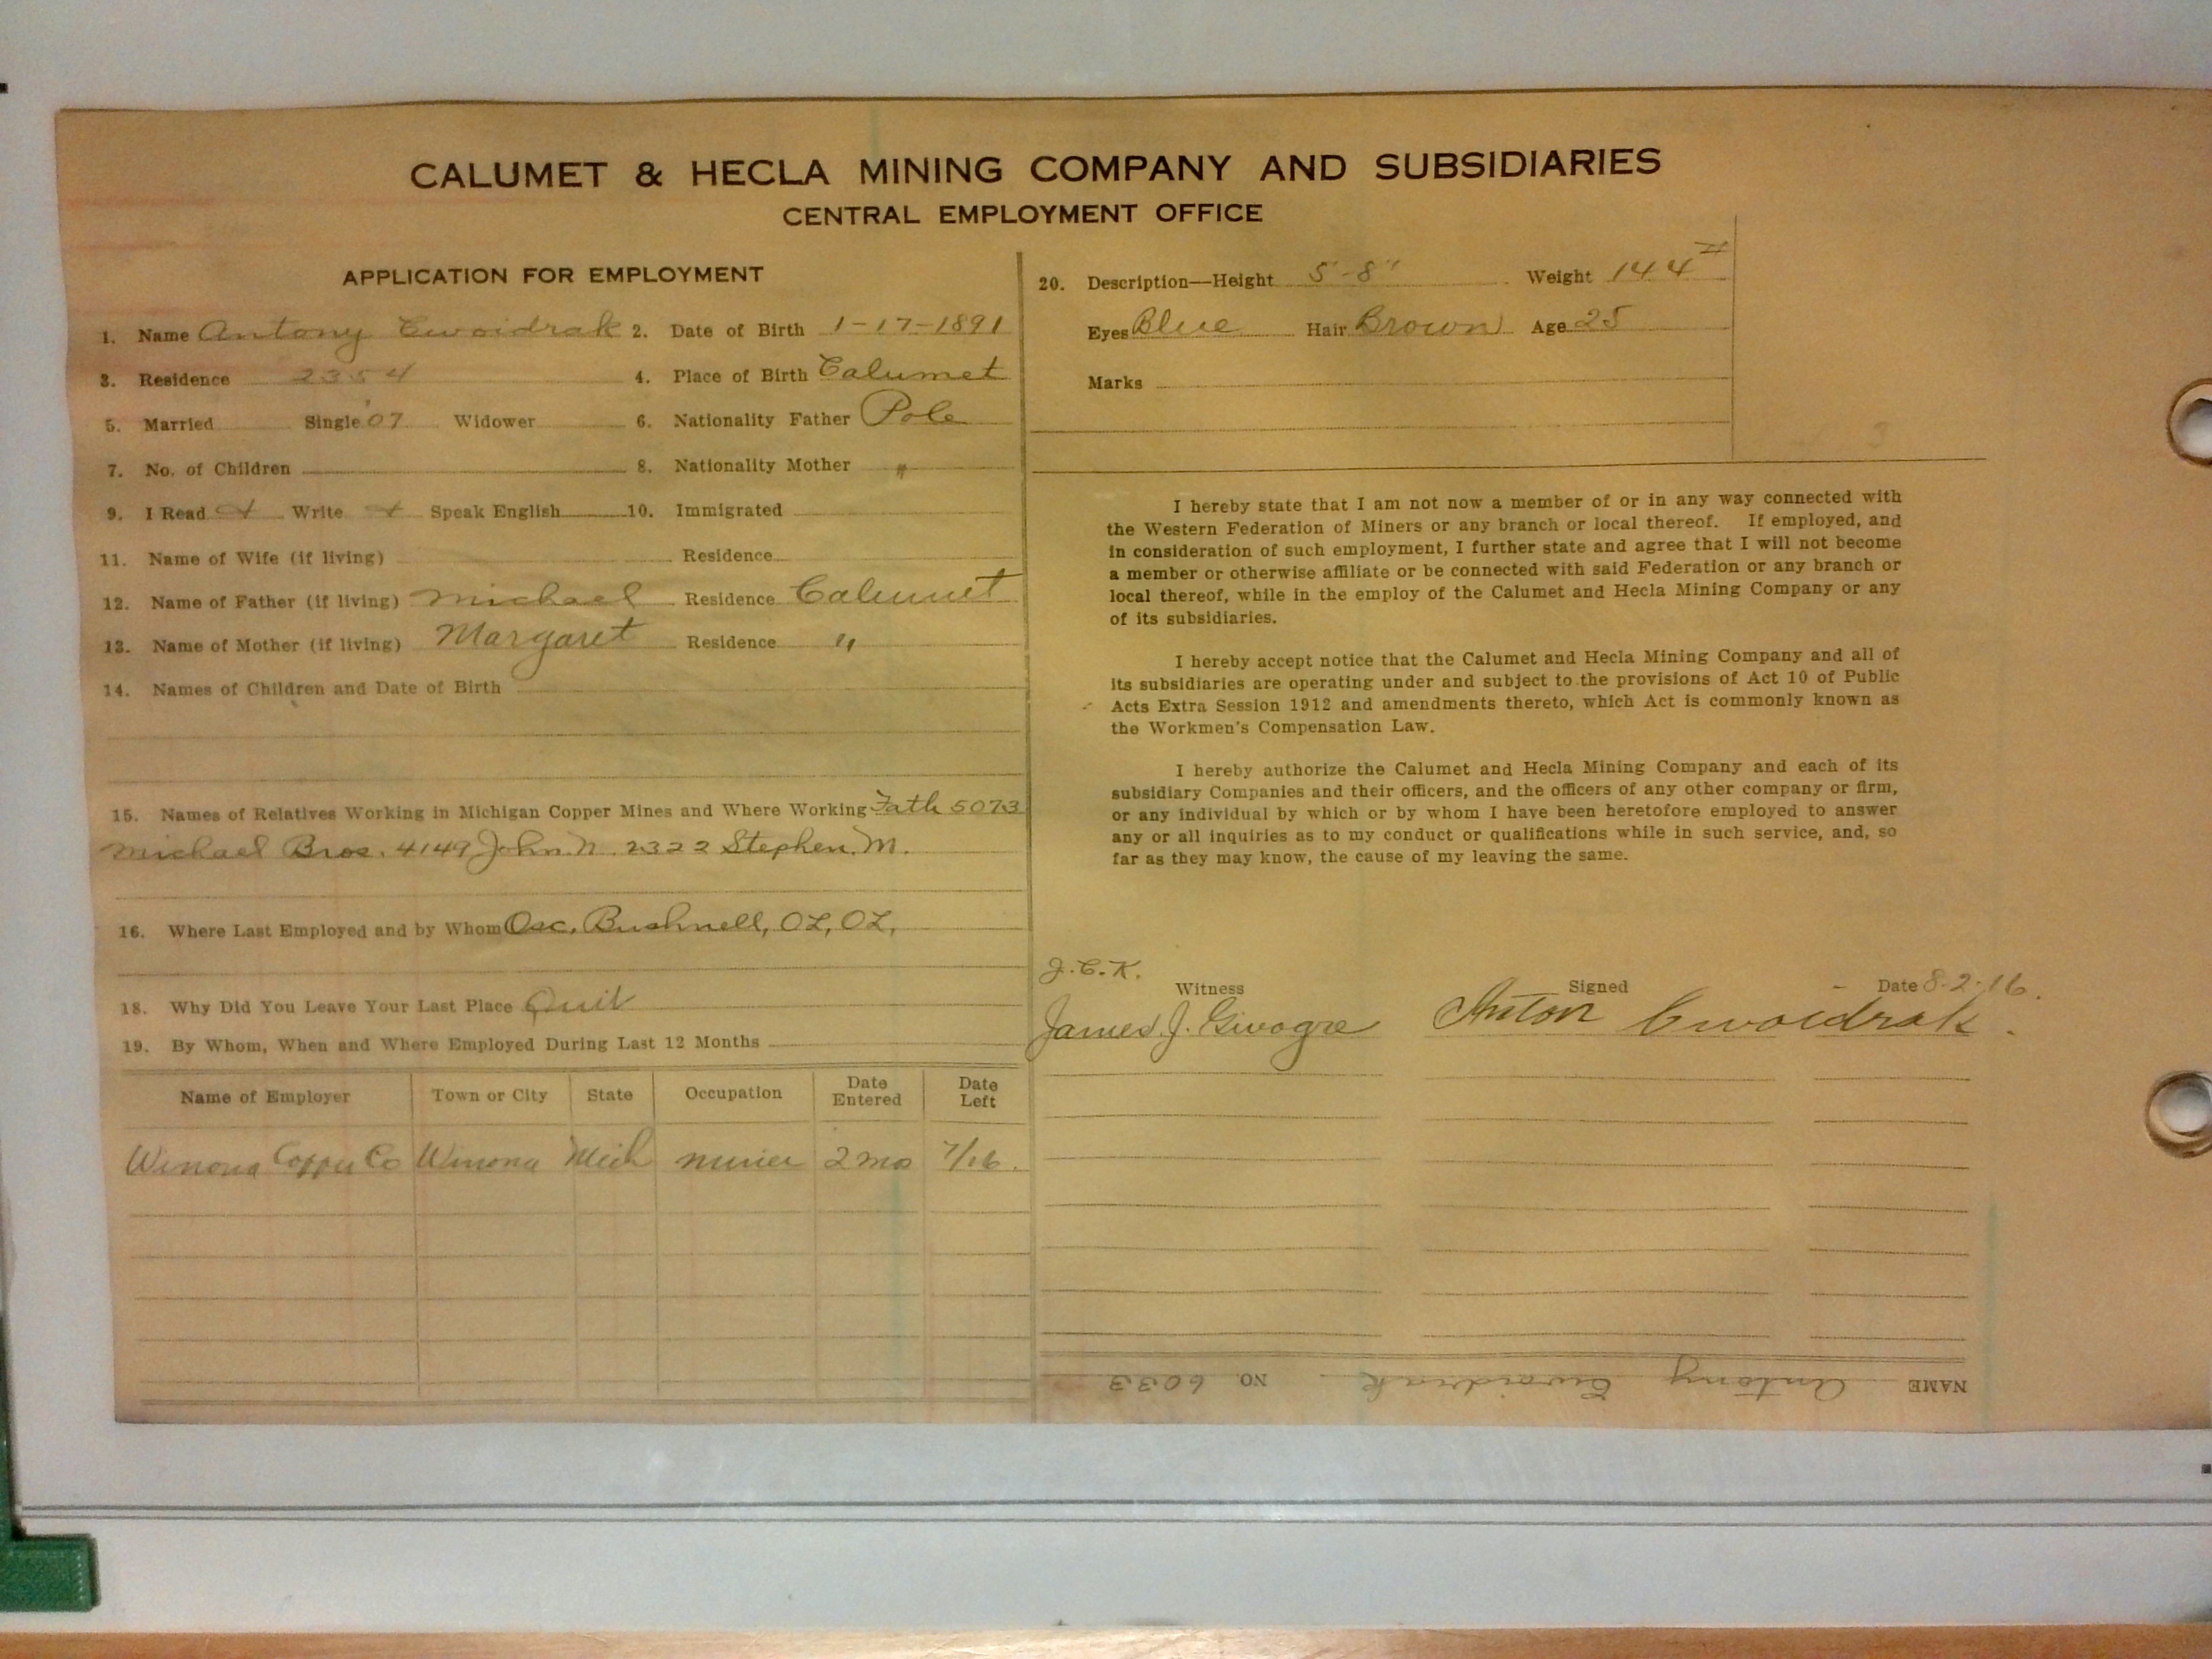 CALUMET & HECLA MINING COMPANY AND SUBSIDIARIES
CENTRAL EMPLOYMENT OFFICE
APPLICATION FOR EMPLOYMENT
1. Name Antony Cwoidrak 2. Date of Birth 1-17-1891
3. Residence 2354 4. Place of Birth Calumet
5. Married Single '07 Widower 6. Nationality Father Pole
7. No. of Children 8. Nationality Mother "
9. I Read Write Speak English 10. Immigrated
11. Name of Wife (if living) Residence
12. Name of Father (if living) Michael Residence Calumet
13. Name of Mother (if living) Margaret Residence "
14. Names of Children and Date of Birth
15. Names of Relatives Working in Michigan Copper Mines and Where Working Fath 5073
Michael Bros. 4149 John N. 2322 Stephen. M.
16. Where Last Employed and by Whom Osc. Bushnell, OL, OL,
18. Why Did You Leave Your Last Place Quit
19. By Whom, When and Where Employed During Last 12 Months
Name of Employer Town or City State Occupation Date Entered Date Left
Winona Copper Co Winona Mich miner 2 mos 7/16.
20. Description—Height 5'-8" Weight 144 #
Eyes Blue Hair Brown Age 25
Marks
I hereby state that I am not now a member of or in any way connected with
the Western Federation of Miners or any branch or local thereof. If employed, and
in consideration of such employment, I further state and agree that I will not become
a member or otherwise affiliate or be connected with said Federation or any branch or
local thereof, while in the employ of the Calumet and Hecla Mining Company or any
of its subsidiaries.
I hereby accept notice that the Calumet and Hecla Mining Company and all of
its subsidiaries are operating under and subject to the provisions of Act 10 of Public
Acts Extra Session 1912 and amendments thereto, which Act is commonly known as
the Workmen's Compensation Law.
I hereby authorize the Calumet and Hecla Mining Company and each of its
subsidiary Companies and their officers, and the officers of any other company or firm,
or any individual by which or by whom I have been heretofore employed to answer
any or all inquiries as to my conduct or qualifications while in such service, and, so
far as they may know, the cause of my leaving the same.
J.C.K.
Witness Signed Date 8-2-16.
James J. Anton Cwoidrak.
NAME Antony Cwoidrak. NO. 6033